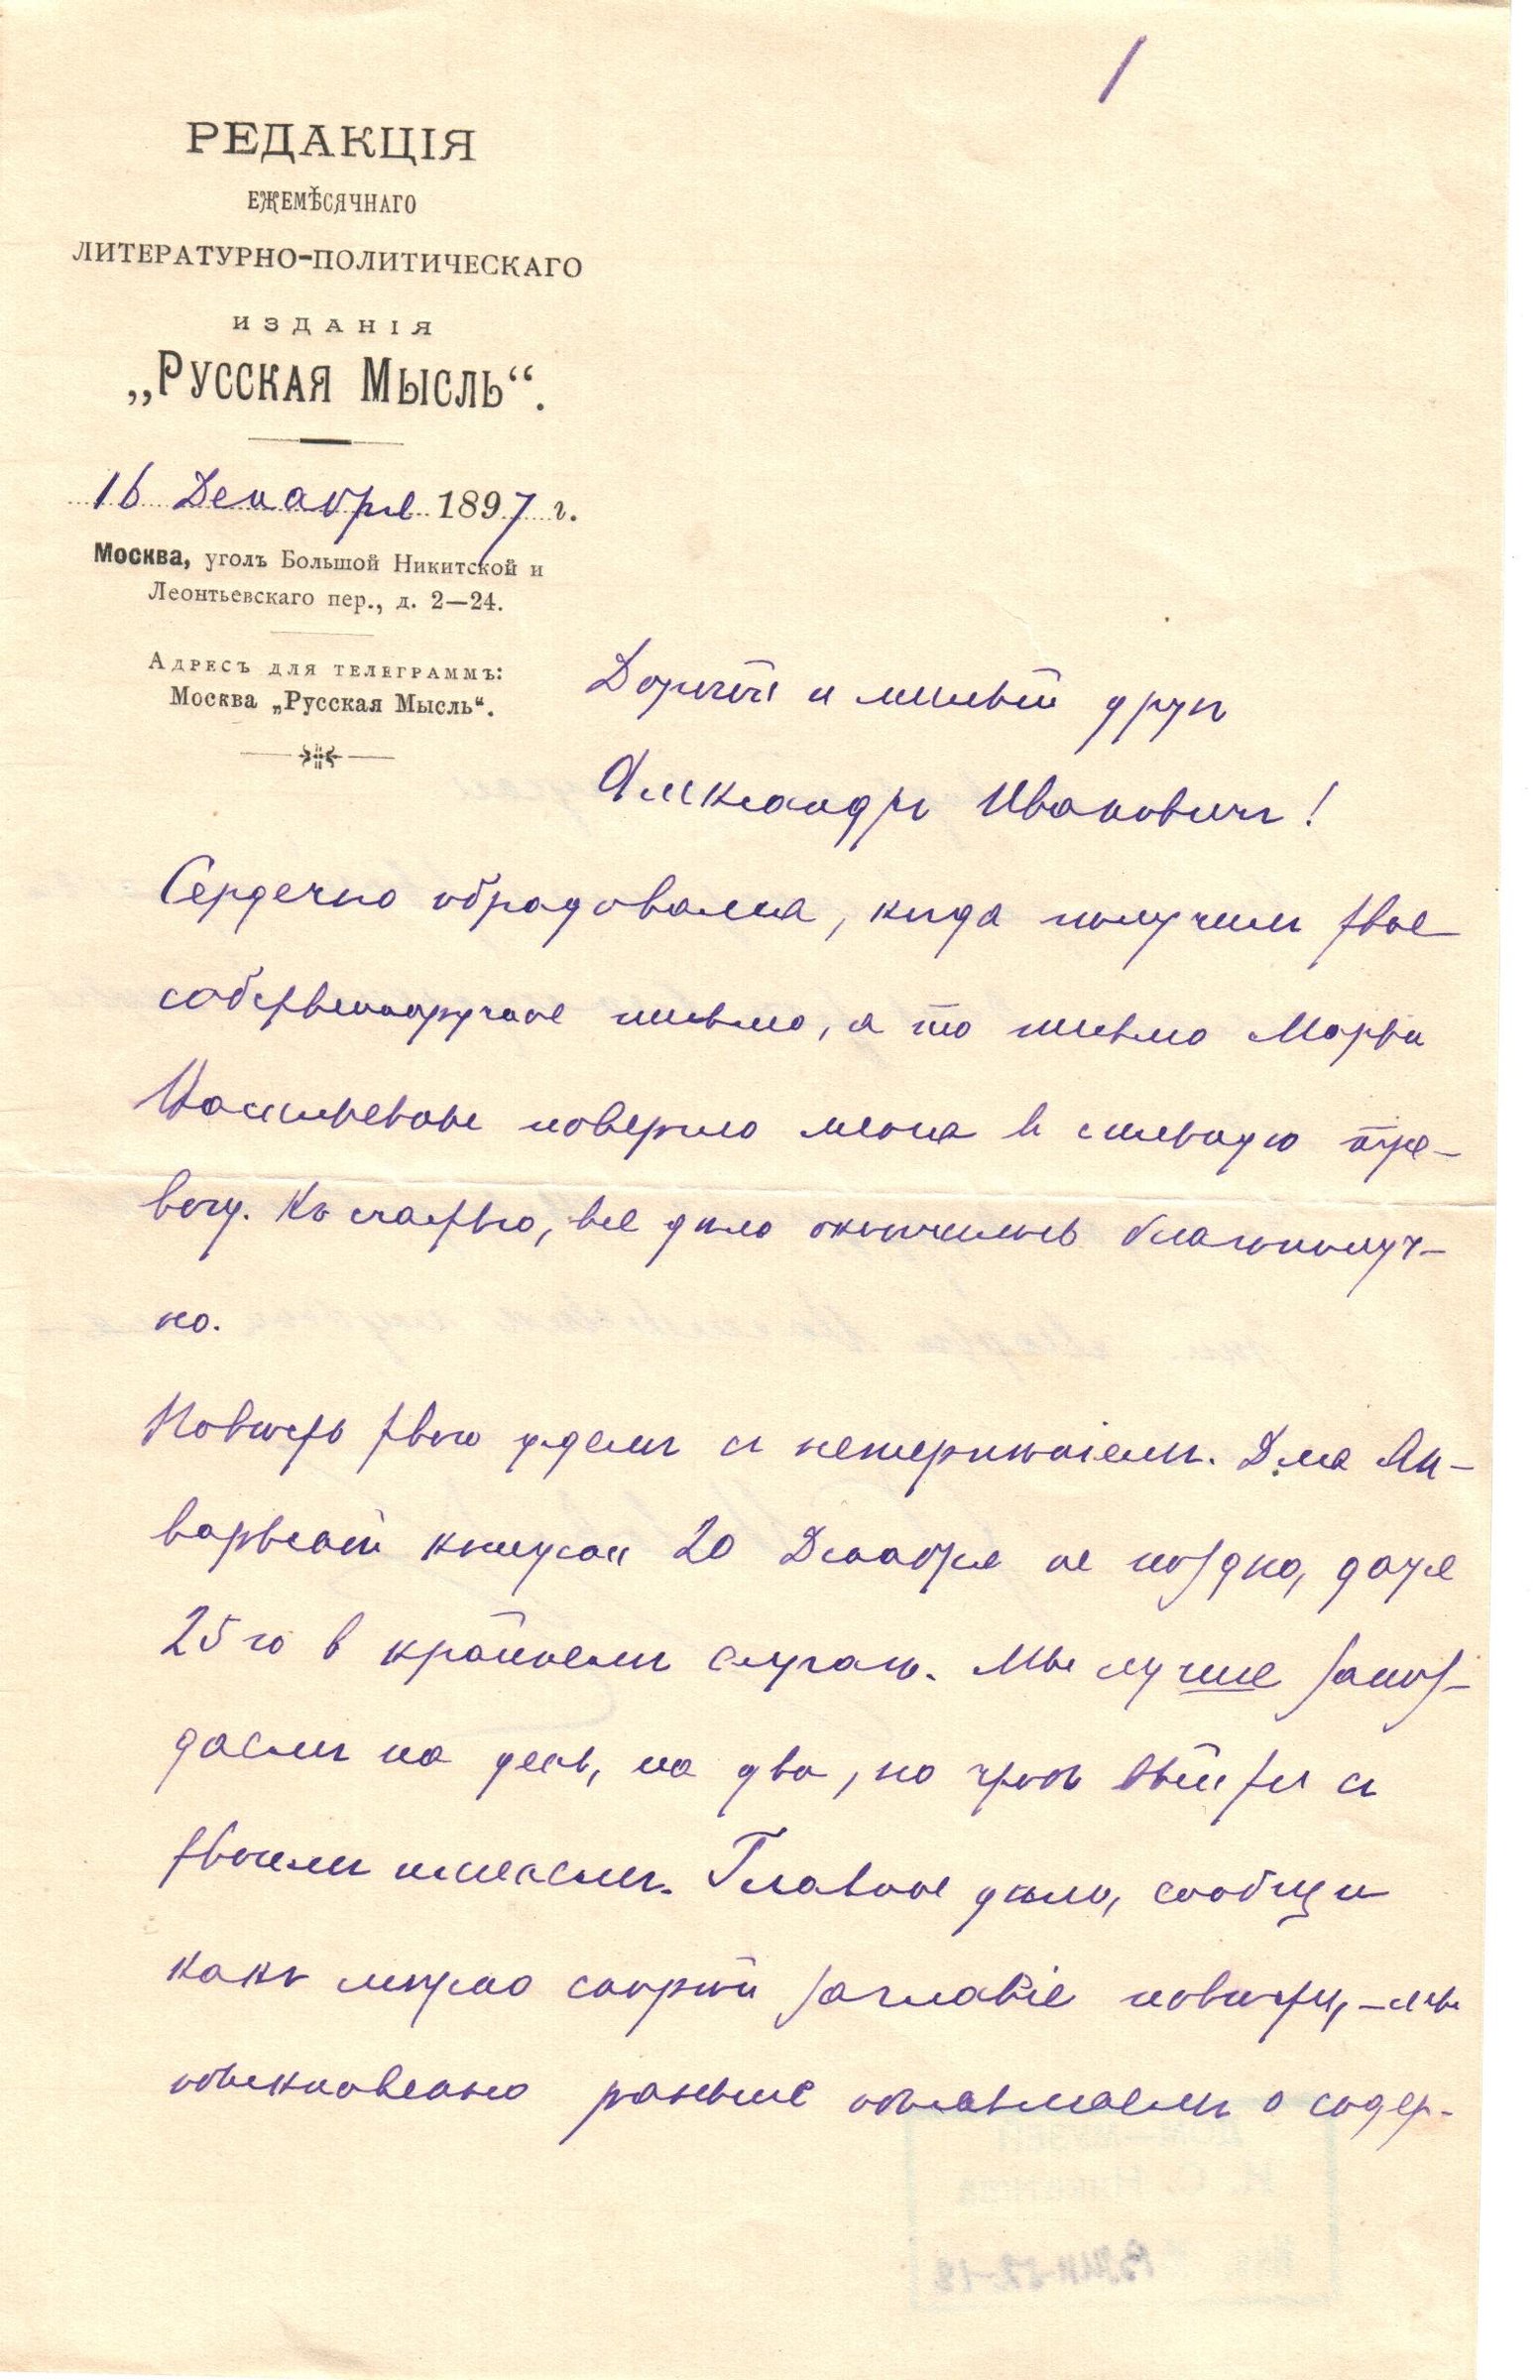 /
РЕДАКЦІЯ
ЕЖЕМѢСЯЧНАГО
ЛИТЕРАТУРНО-ПОЛИТИЧЕСКАГО
ИЗДАНІЯ
„РУССКАЯ МЫСЛЬ“.
16 Декабря 1897 г.
Москва, уголъ Большой Никитской и
Леонтьевскаго пер., д. 2—24.
Адресъ для телеграммъ:
Москва „Русская Мысль“.
Дорогой и милый другъ
Александръ Ивановичъ!
Сердечно обрадовался, когда получилъ твое
собственноручное письмо, а то письмо Марьи
Васильевны повергло меня в сильную тре-
вогу. Къ счастью, все дѣло окончилось благополуч-
но.
Повѣсть твою ждемъ съ нетерпѣніемъ. Для Ян-
варьской книжки 20 Декабря не поздно, даже
25го в крайнемъ случаѣ. Мы лучше запоз-
даемъ на день, на два, но чтобъ выйти съ
твоимъ именемъ. Главное дѣло, сообщи
какъ можно скорѣй заглавіе повѣсти, — мы
обыкновенно раньше объявляемъ о содер-